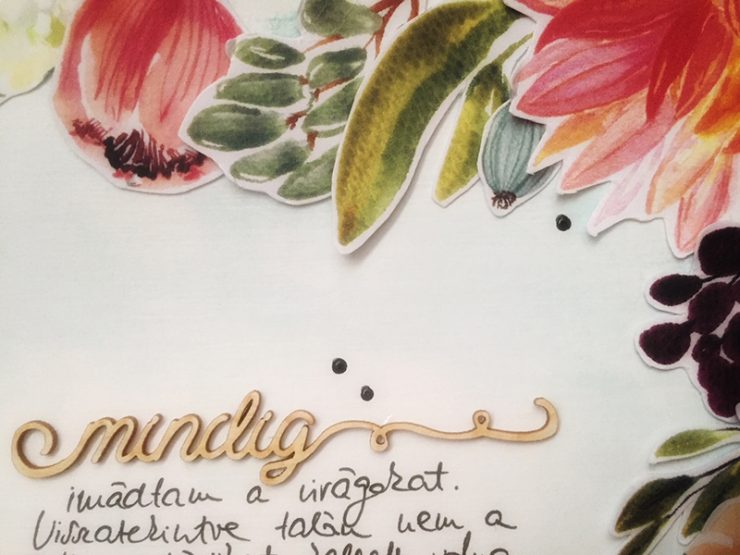 mindig
imádtam a virágokat.
Visszatekintve talán nem a